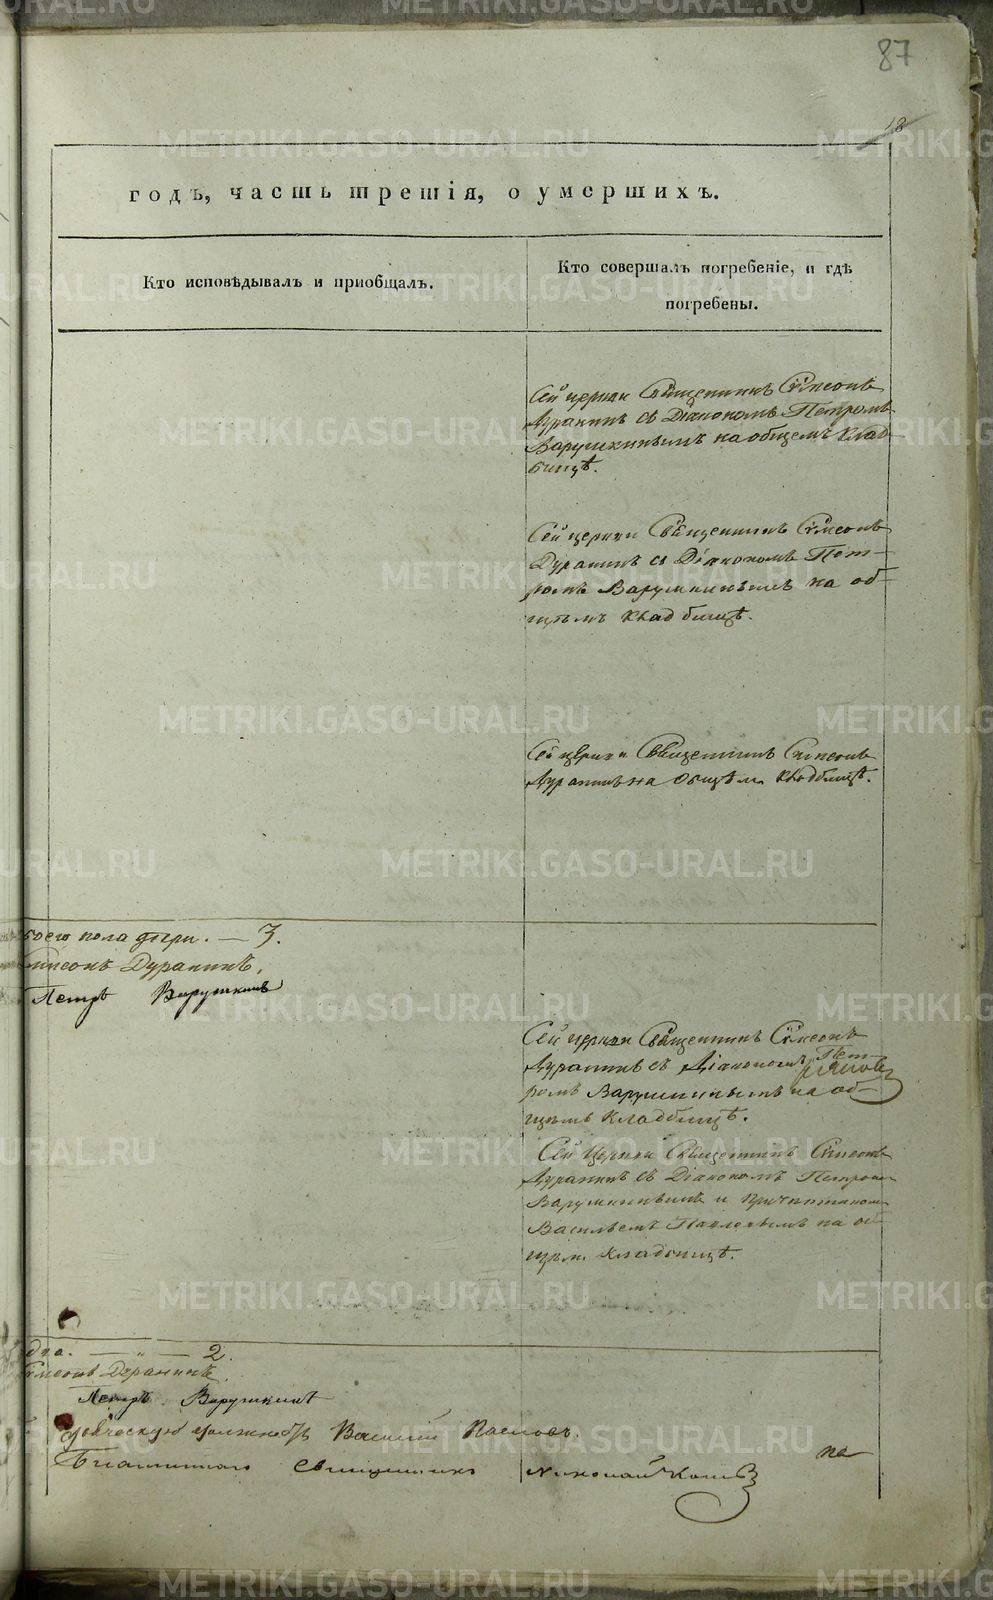 87
18
годъ, часть третія, о умершихъ.
Кто исповѣдывалъ и пріобщалъ.
Кто совершалъ погребеніе, и гдѣ
погребены.
Сей церкви Священникъ Сѵмеонъ
Дуранинъ съ Діакономъ Петромъ
Варушкинымъ на общемъ клад
бищѣ.
Сей церкви Священникъ Сѵмеонъ
Дуранинъ съ Діакономъ Пет-
ромъ Варушкинымъ на об-
щемъ кладбищѣ.
Сей церкви Священникъ Симеонъ
Дуранинъ на общѣм кладбищѣ.
обоего пола три. — 3.
Симеонъ Дуранинъ,
Петръ Варушкинъ
Сей церкви Священникъ Сѵмеонъ
Дуранинъ съ Діакономъ Пет-
ромъ Варушкинымъ на об-
щемъ кладбищѣ.
Сей Церкви Священникъ Симеонъ
Дуранинъ съ Діакономъ Петромъ
Варушкинымъ и
Васильемъ Павловымъ на об-
щем кладбищѣ.
два. — „ — 2.
Симеонъ Дуранинъ.
Петръ Варушкинъ
должность Василій Павловъ.
Священникъ Николай
METRIKI.GASO-URAL.RU